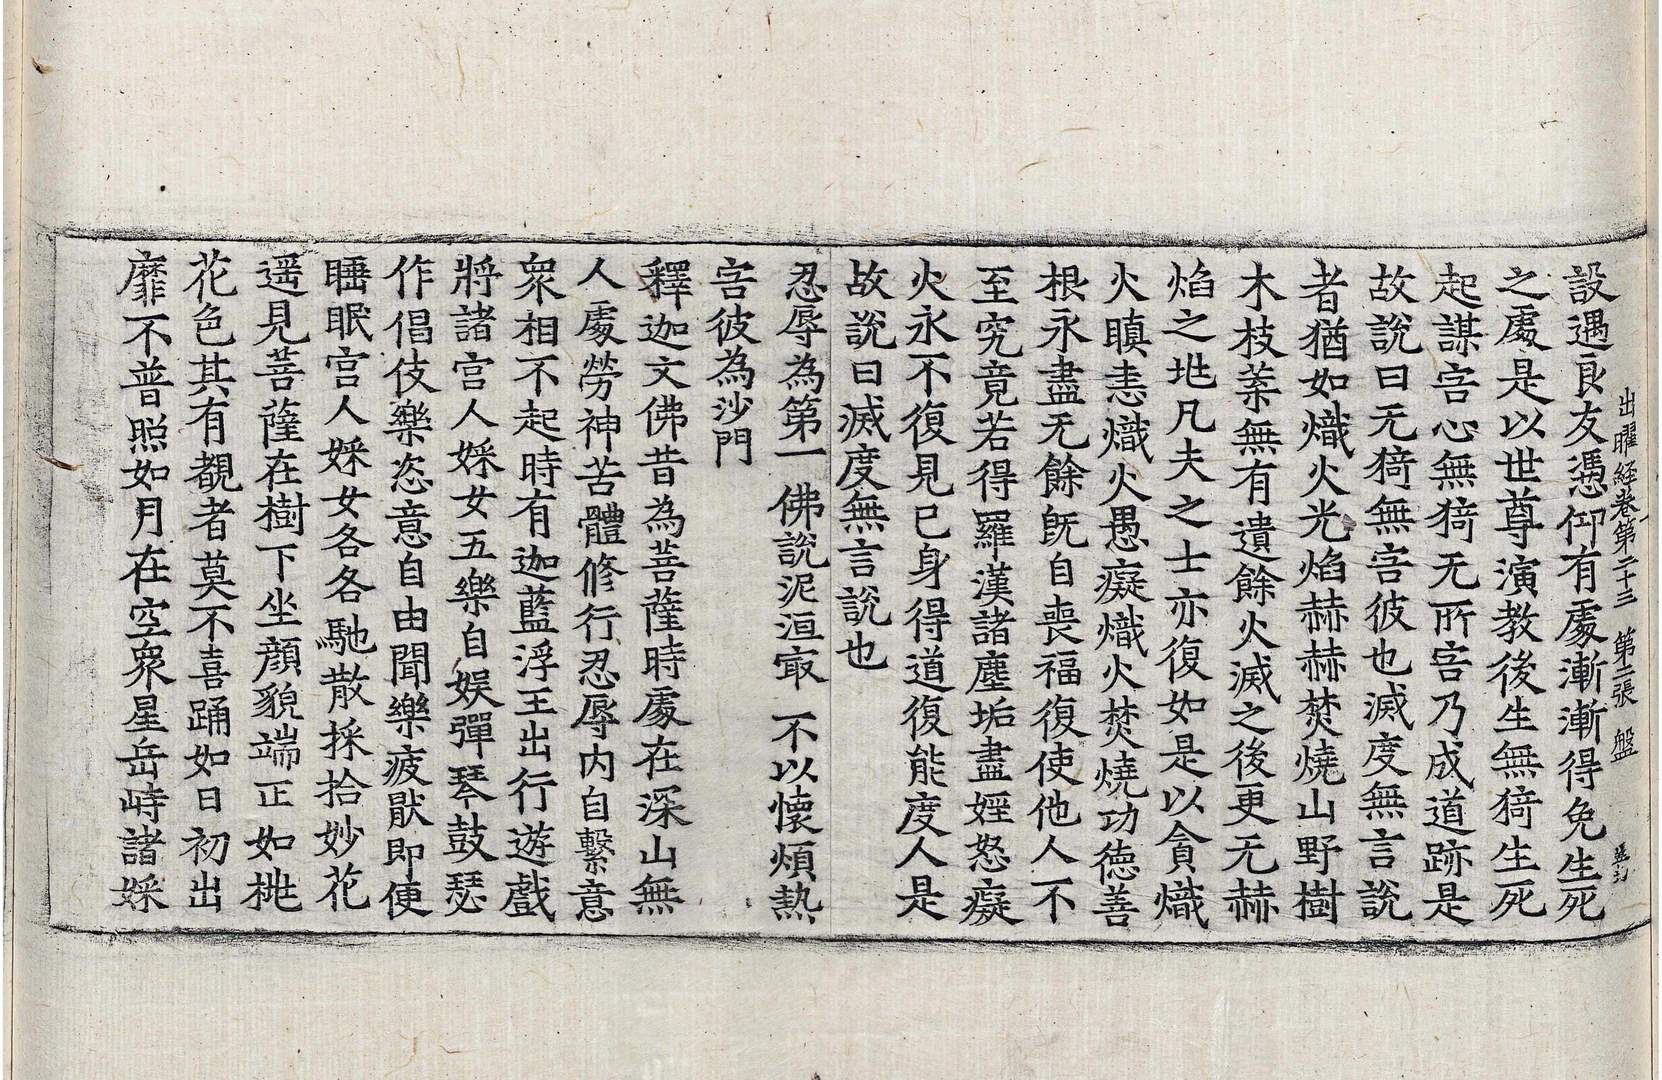 出曜経卷第二十三 第二張 盤
設遇良友憑仰有處漸漸得免生死
之處是以世尊演教後生無猗生死
起謀害心無猗无所害乃成道跡是
故說曰无猗無害彼也滅度無言說
者猶如熾火光焰赫赫焚燒山野樹
木枝葉無有遺餘火滅之後更无赫
焰之地凡夫之士亦復如是以貪熾
火瞋恚熾火愚癡熾火焚燒功德善
根永盡无餘旣自喪福復使他人不
至究竟若得羅漢諸塵垢盡婬怒癡
火永不復見已身得道復能度人是
故說曰滅度無言說也
忍辱為第一 佛說泥洹㝡 不以懷煩熱
害彼為沙門
釋迦文佛昔為菩薩時處在深山無
人處勞神苦體修行忍辱內自繫意
衆相不起時有迦藍浮王出行遊戲
將諸宮人婇女五樂自娛彈琴鼓瑟
作倡伎樂恣意自由聞樂疲猒即便
睡眠宮人婇女各各馳散採拾妙花
遥見菩薩在樹下坐顔貌端正如桃
花色其有覩者莫不喜踊如日初出
靡不普照如月在空衆星岳峙諸婇